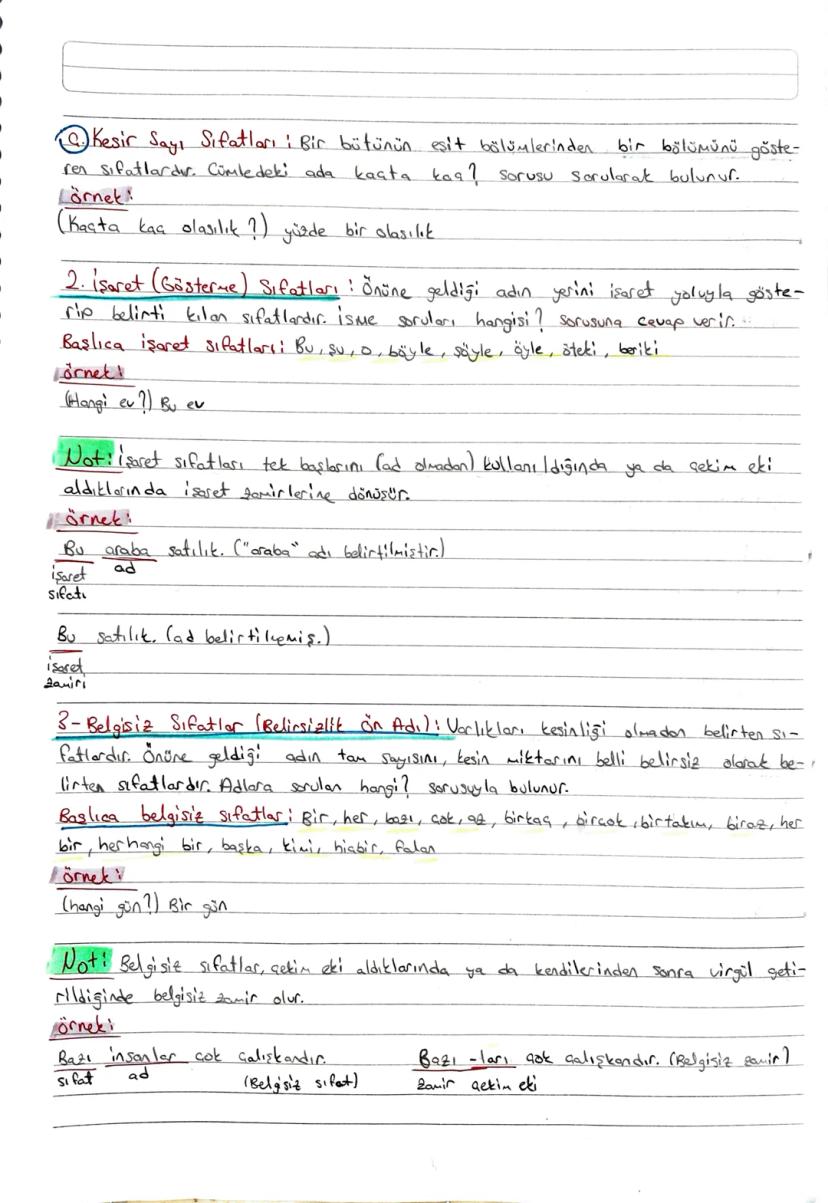 ç. Kesir Sayı Sıfatları : Bir bütünün eşit bölümlerinden bir bölümünü göste-
ren sıfatlardır. Cümledeki ada kaçta kaç? sorusu sorularak bulunur.
örnek:
(Kaçta kaç olasılık?) yüzde bir olasılık
2. İşaret (Gösterme) Sıfatları : Önüne geldiği adın yerini işaret yoluyla göste-
rip belirti kılan sıfatlardır. İsme soruları hangisi? sorusuna cevap verir.
Başlıca işaret sıfatları: Bu, şu, o, böyle, şöyle, öyle, öteki, beriki
örnek:
(Hangi ev?) Bu ev
Not: İşaret sıfatları tek başlarını (ad olmadan) kullanıldığında ya da çekim eki
aldıklarında işaret zamirlerine dönüşür.
örnek:
Bu araba satılık. ("araba" adı belirtilmiştir.)
işaret ad
sıfatı
Bu satılık. (ad belirtilmemiş.)
işaret
zamiri
3- Belgisiz Sıfatlar (Belirsizlik Ön Adı) : Varlıkları kesinliği olmadan belirten sı-
fatlardır. Önüne geldiği adın tam sayısını, kesin miktarını belli belirsiz olarak be-
lirten sıfatlardır. Adlara sorulan hangi? sorusuyla bulunur.
Başlıca belgisiz sıfatlar : Bir, her, bazı, çok, az, birkaç, birçok, birtakım, biraz, her
bir, herhangi bir, başka, kimi, hiçbir, falan
örnek:
(hangi gün?) Bir gün
Not: Belgisiz sıfatlar, çekim eki aldıklarında ya da kendilerinden sonra virgül geti-
rildiğinde belgisiz zamir olur.
örnek:
Bazı insanlar çok çalışkandır. Bazı -ları çok çalışkandır. (Belgisiz zamir)
sıfat ad (Belgisiz sıfat) zamir çekim eki